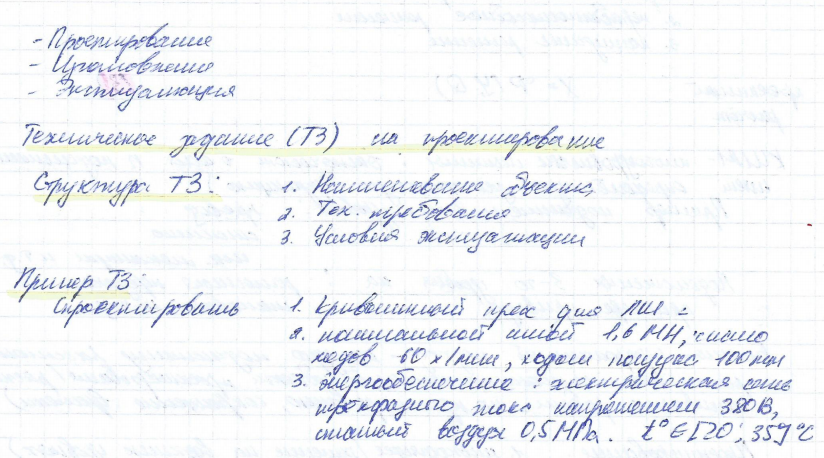 - Проектирование
- Изготовление
- Эксплуатация
Техническое задание (ТЗ) на проектирование
Структура ТЗ: 1. Наименование объекта
2. Тех. требования
3. Условия эксплуатации
Пример ТЗ:
Спроектировать 1. Кривошипный пресс для ЛШ =
2. номинальной силой 1,6 МН, число
ходов 60 х/мин, ходом ползуна 100 мм
3. Энергообеспечение: электрическая сеть
трёхфазного тока напряжением 380 В,
сжатый воздух 0,5 МПа. t° ∈ [20; 35] °C